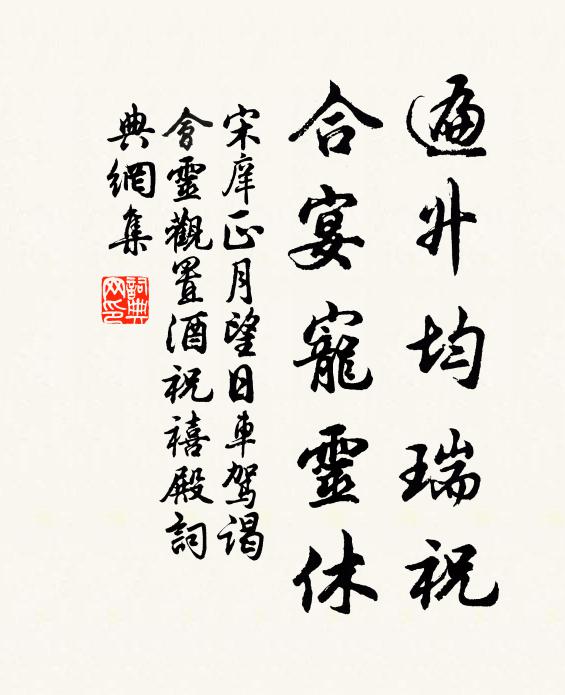 遍升均瑞祝
合宴寵靈休
宋庠正月望日車駕謁
會靈觀置酒祝禧殿詞
典網集
詞典
网印